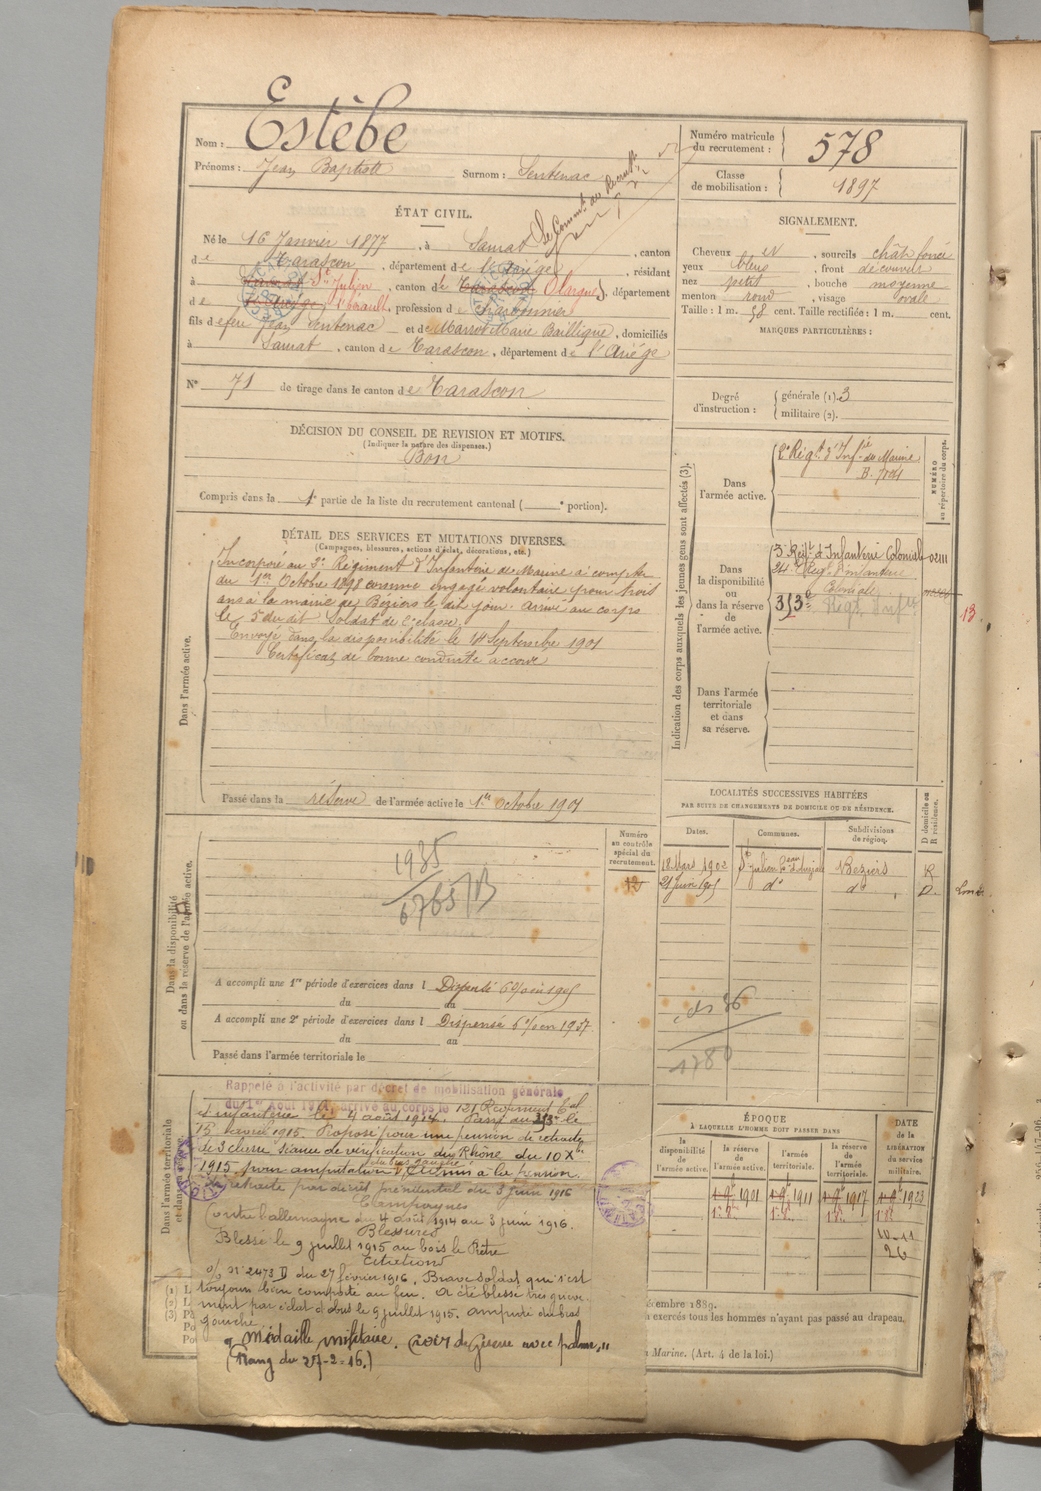 Nom : Estèbe
Prénoms : Jean Baptiste Surnom : Sentenac
Numéro matricule du recrutement : 578
Classe de mobilisation : 1897
ÉTAT CIVIL.
Né le 16 Janvier 1877, à Saurat, canton
de Tarascon, département de l'Ariége, résidant
à St Julien, canton de Tarascon Olargues, département
de l'Ariége l'hérault, profession de
fils de feu Jean Sentenac et de Marrot Marie Baillique, domiciliés
à Saurat, canton de Tarascon, département de l'Ariége
N° 71 de tirage dans le canton de Tarascon
SIGNALEMENT.
Cheveux et, sourcils chât foncé
yeux bleus, front découvert
nez petit, bouche moyenne
menton rond, visage ovale
Taille : 1 m. 58 cent. Taille rectifiée : 1 m. cent.
MARQUES PARTICULIÈRES :
Degré d'instruction : générale (1). 3
militaire (2).
DÉCISION DU CONSEIL DE REVISION ET MOTIFS.
(Indiquer la nature des dispenses.)
Bon
Compris dans la 1e partie de la liste du recrutement cantonal ( e portion).
DÉTAIL DES SERVICES ET MUTATIONS DIVERSES.
(Campagnes, blessures, actions d'éclat, décorations, etc.)
Dans l'armée active.
Incorporé au 2e Régiment d'Infanterie de Marine à compter
du 1er Octobre 1898 comme engagé volontaire pour trois
ans à la mairie de Béziers le dit jour. Arrivé au corps
le 5 du dit Soldat de 2e classe.
Envoyé dans la disponibilité le 14 Septembre 1901
Certificat de bonne conduite accordé
Passé dans la réserve de l'armée active le 1er Octobre 1901
Indication des corps auxquels les jeunes gens sont affectés (3).
NUMÉRO au répertoire du corps.
Dans l'armée active.
2e Régt d'Infie de Marine
Dans la disponibilité ou dans la réserve de l'armée active.
3e Régt d'Infanterie Coloniale
24e Régt d'infanterie
Coloniale
353e Régt Infie
13.
Dans l'armée territoriale et dans sa réserve.
LOCALITÉS SUCCESSIVES HABITÉES
PAR SUITE DE CHANGEMENTS DE DOMICILE OU DE RÉSIDENCE.
Dates. Communes. Subdivisions de région. D domicile ou R résidence.
18 Mars 1902 St Julien Béziers R
21 Juin 1905 do do D.
Dans la disponibilité ou dans la réserve de l'armée active.
Numéro au contrôle spécial du recrutement.
12
1935
6765
A accompli une 1re période d'exercices dans l Dispensé
du au
A accompli une 2e période d'exercices dans l Dispensé
du au
Passé dans l'armée territoriale le
1780
Dans l'armée territoriale
Rappelé à l'activité par décret de mobilisation générale
du 1er Août 1914, arrivé au corps le 121 Régiment
d'infanterie le 4 août 1914. Passé au 353e le
15 avril 1915. Proposé pour une pension de retraite
de 3e classe Séance de vérification du Rhône du 10 Xbre
1915 pour amputation du bras gauche. Admis à la pension
de retraite par décret présidentiel du 3 Juin 1916
Campagnes
Contre l'allemagne du 4 août 1914 au 3 juin 1916.
Blessures
Blessé le 9 juillet 1915 au bois le Prêtre
Citation
o/ n° 2473 D du 27 février 1916. Brave soldat qui s'est
toujours bien comporté au feu. A été blessé très griève-
ment par éclat d'obus le 9 juillet 1915. Amputé du bras
gauche.
"Médaille militaire. Croix de Guerre avec palme."
(Rang du 27-2-16.)
ÉPOQUE
À LAQUELLE L'HOMME DOIT PASSER DANS
la disponibilité de l'armée active. la réserve de l'armée active. l'armée territoriale. la réserve de l'armée territoriale.
DATE de la LIBÉRATION du service militaire.
1901 1911 1917 1923
26
(1) L
(2) L
(3) Pa
Po
Pou
écembre 1889.
exercés tous les hommes n'ayant pas passé au drapeau.
Marine. (Art. 4 de la loi.)